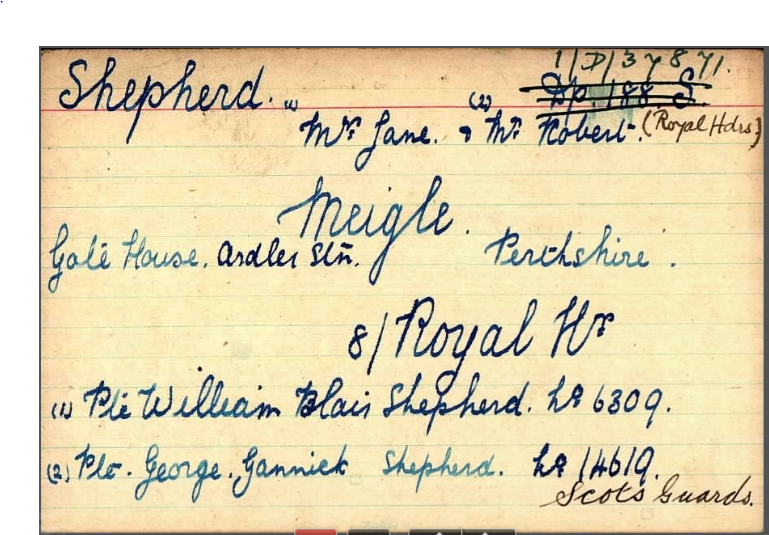 1/D/37871.
Shepherd. (1) (2) Dp. 188. S.
Mrs Jane. & Mr Robert. (Royal Hdrs)
Meigle.
Gate House. Ardler Stn. Perthshire.
8/Royal Hrs
(1) Pte William Blair Shepherd. No 6309.
(2) Pte. George. Gannick Shepherd. No 14619.
Scots Guards.